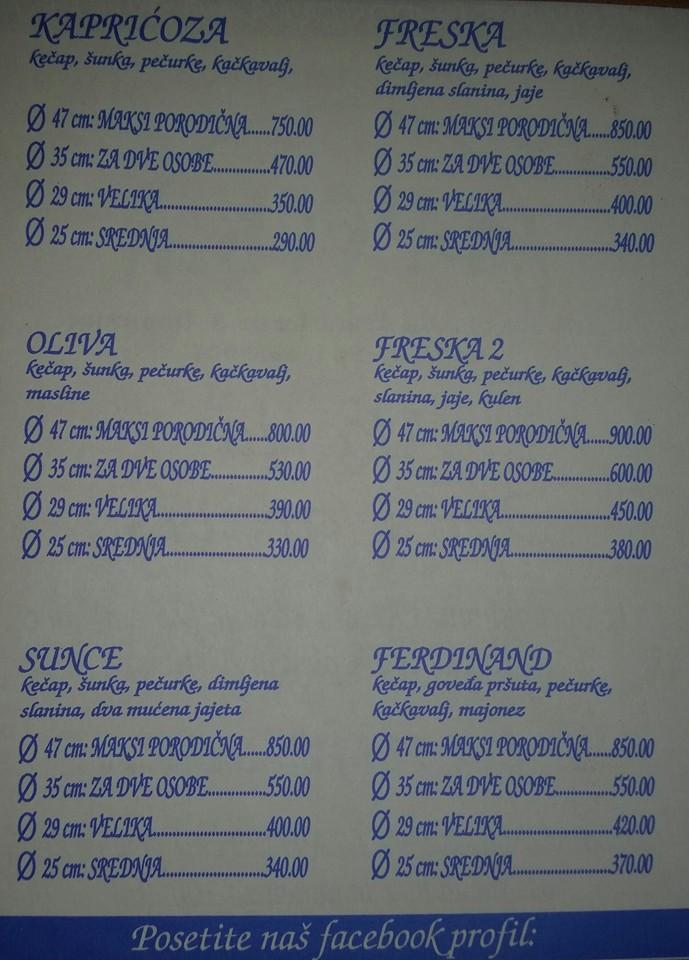 KAPRIĆOZA
kečap, šunka, pečurke, kačkavalj,
Ø 47 cm: MAKSI PORODIČNA......750.00
Ø 35 cm: ZA DVE OSOBE...............470.00
Ø 29 cm: VELIKA.............................350.00
Ø 25 cm: SREDNJA..........................290.00
OLIVA
kečap, šunka, pečurke, kačkavalj,
masline
Ø 47 cm: MAKSI PORODIČNA......800.00
Ø 35 cm: ZA DVE OSOBE...............530.00
Ø 29 cm: VELIKA.............................390.00
Ø 25 cm: SREDNJA..........................330.00
SUNCE
kečap, šunka, pečurke, dimljena
slanina, dva mućena jajeta
Ø 47 cm: MAKSI PORODIČNA......850.00
Ø 35 cm: ZA DVE OSOBE...............550.00
Ø 29 cm: VELIKA.............................400.00
Ø 25 cm: SREDNJA..........................340.00
FRESKA
kečap, šunka, pečurke, kačkavalj,
dimljena slanina, jaje
Ø 47 cm: MAKSI PORODIČNA......850.00
Ø 35 cm: ZA DVE OSOBE...............550.00
Ø 29 cm: VELIKA.............................400.00
Ø 25 cm: SREDNJA..........................340.00
FRESKA 2
kečap, šunka, pečurke, kačkavalj,
slanina, jaje, kulen
Ø 47 cm: MAKSI PORODIČNA......900.00
Ø 35 cm: ZA DVE OSOBE...............600.00
Ø 29 cm: VELIKA.............................450.00
Ø 25 cm: SREDNJA..........................380.00
FERDINAND
kečap, goveđa pršuta, pečurke,
kačkavalj, majonez
Ø 47 cm: MAKSI PORODIČNA......850.00
Ø 35 cm: ZA DVE OSOBE...............550.00
Ø 29 cm: VELIKA.............................420.00
Ø 25 cm: SREDNJA..........................370.00
Posetite naš facebook profil: